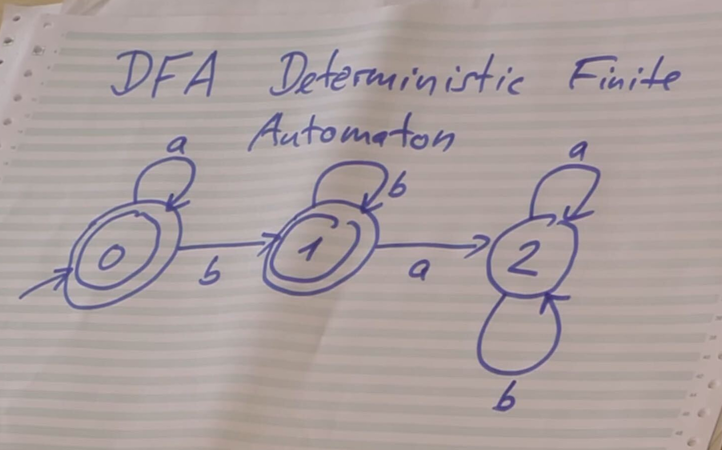 DFA Deterministic Finite
Automaton
a
b
a
0
1
2
b
a
b